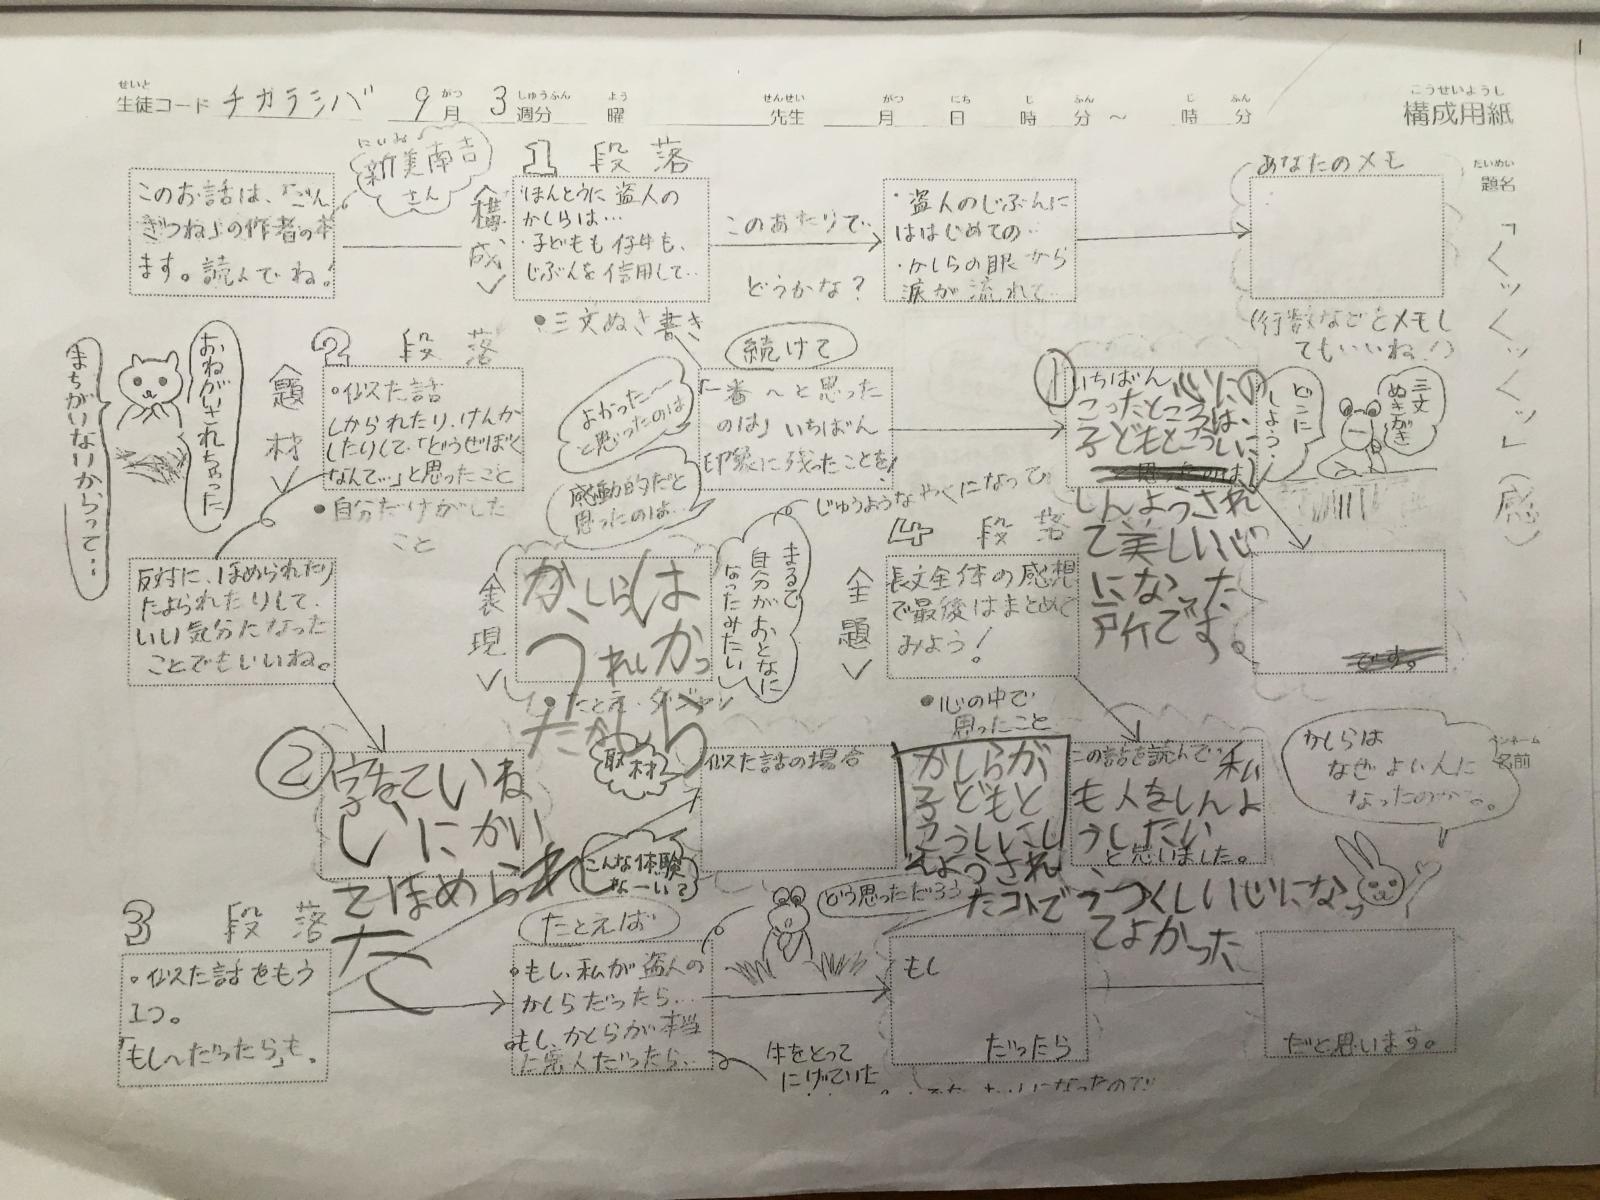 せいと がつ しゅうふん よう せんせい がつ にち じ ふん じ ふん こうせいようし
生徒コード チガラシバ 9月 3週分 曜 先生 月 日 時 分 〜 時 分 構成用紙
だいめい
題名
「クックックッ」(感)
このお話は、「ごん
ぎつね」の作者の本
ます。読んでね!
にいみ
新美南吉
さん
〈構成〉
1 段落
・ほんとうに盗人の
かしらは…
・子どもも仔牛も、
じぶんを信用して…
●三文ぬき書き
このあたりで…
どうかな?
・盗人のじぶんに
ははじめての…
・かしらの眼から
涙が流れて…
あなたのメモ
(行数などをメモし
てもいいね!)
まちがいないからって…
おねがいされちゃった
〈題材〉
2 段落
・似た話
しかられたり、けんか
したりして、「どうせぼく
なんて…」と思ったこと
●自分だけがした
こと
よかった〜
と思ったのは
感動的だと
思ったのは…
続けて
「一番〜と思った
のは」いちばん
印象に残ったことを!
①
いちばん心に
こったところは、
子どもとこうしに
と思ったのは、
しんようされ
て美しい心
になった
所です。
どこに
しよう…
三文
ぬきがき
です。
反対に、ほめられたり
たよられたりして、
いい気分になった
ことでもいいね。
〈表現〉
かしらは
うれしかっ
ただろう
●たとえ・ダジャレ
まるで
自分がおとなに
なったみたい
じゅうようなやくになって
〈主題〉
4 段落
長文全体の感想
で最後はまとめて
みよう!
●心の中で
思ったこと
②
字をていね
いにかい
てほめられ
た
取材
こんな体験
なーい?
似た話の場合
かしらが、
子どもと
こうしにし
んようされ
たコトで
この話を読んで私
も人をしんよ
うしたい
と思いました。
うつくしい心になっ
てよかった
ペンネーム
名前
かしらは
なぜよい人に
なったのかな。
3 段落
・似た話をもう
1つ。
「もし〜だったら」も。
たとえば
・もし、私が盗人の
かしらだったら…
・もし、かしらが本当
に悪人だったら…
どう思っただろう
もし
だったら
だと思います。
牛をとって
にげていた
になったので